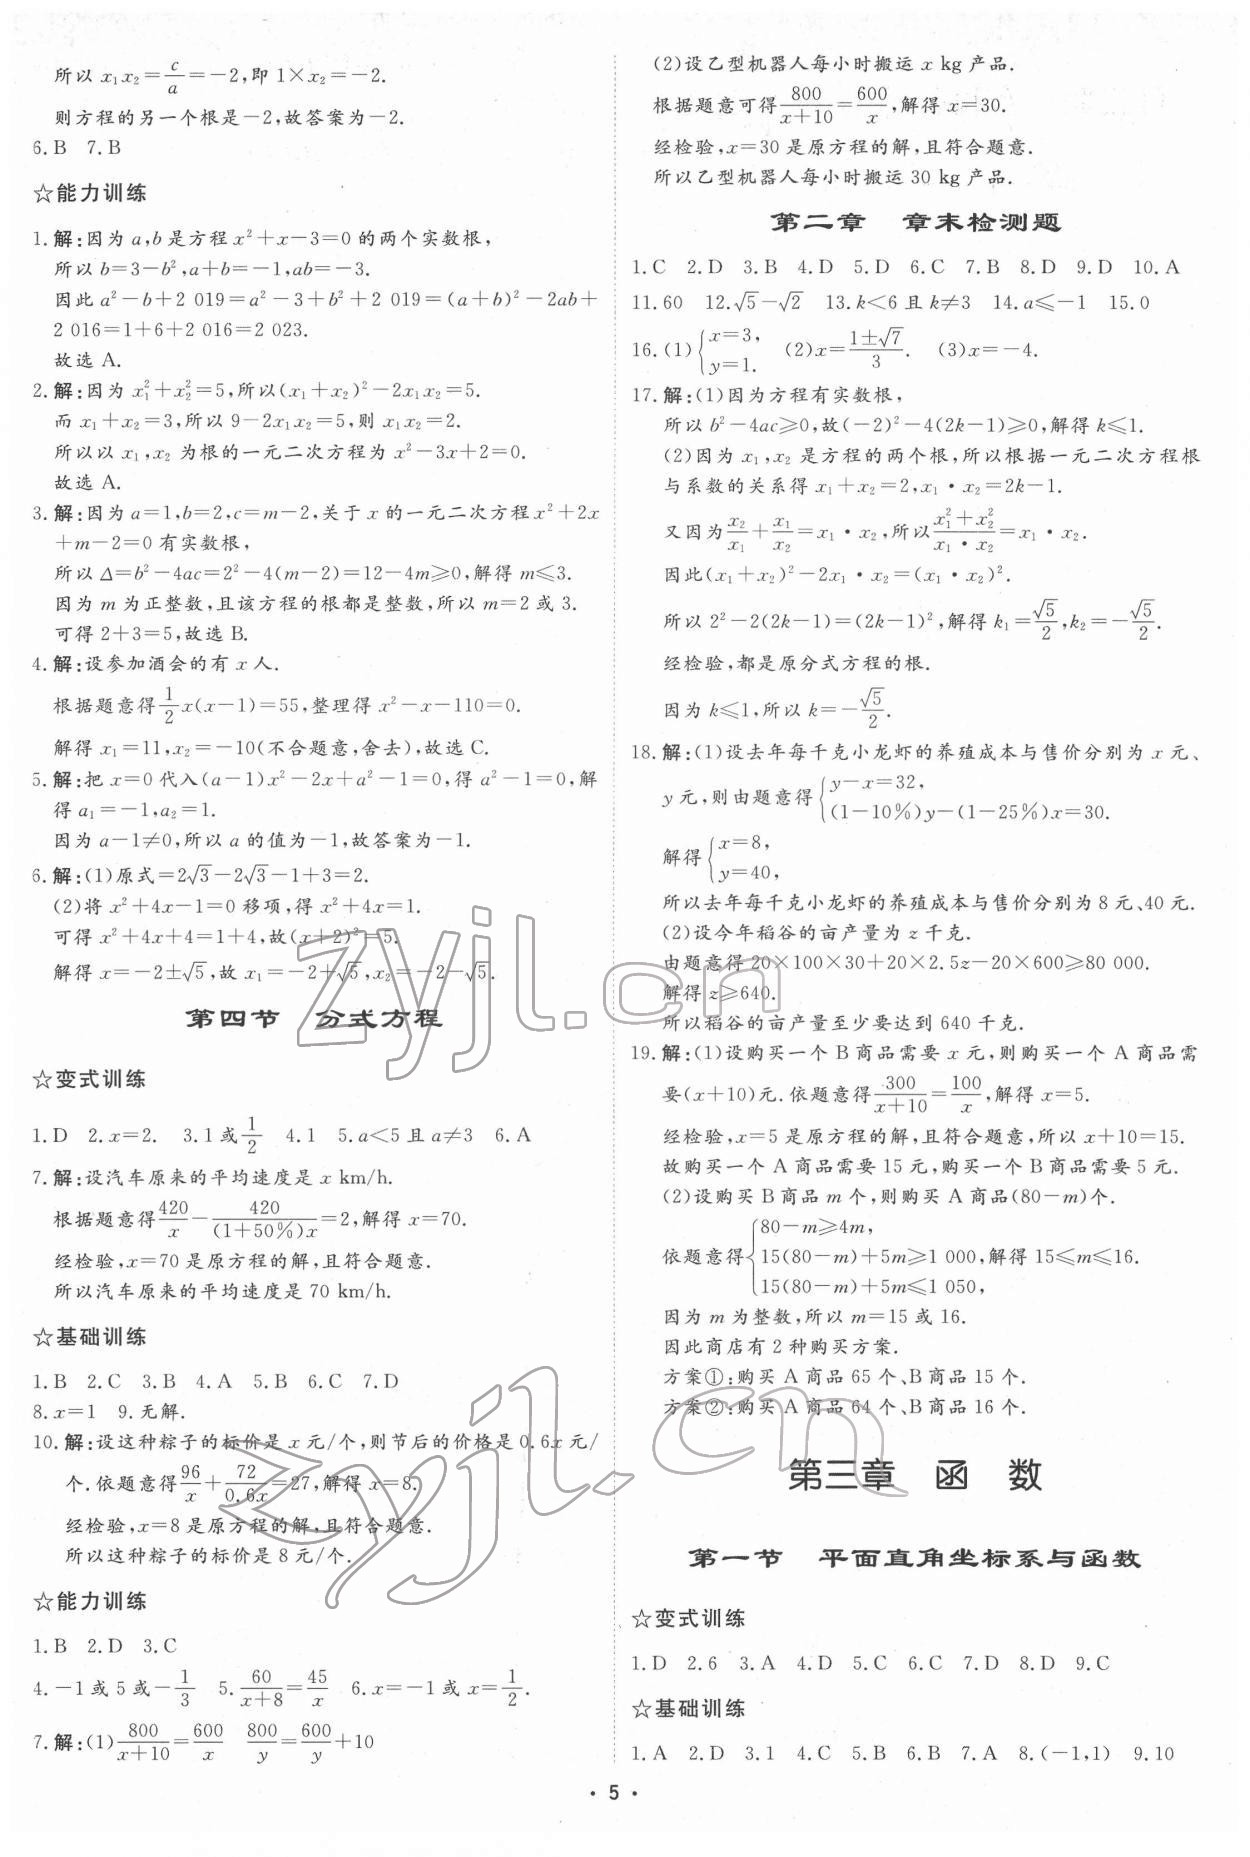 所以 x₁x₂=c/a=-2,即 1×x₂=-2.
则方程的另一个根是-2,故答案为-2.
6.B 7.B
☆能力训练
1.解:因为 a,b 是方程 x²+x-3=0 的两个实数根,
所以 b=3-b²,a+b=-1,ab=-3.
因此 a²-b+2 019=a²-3+b²+2 019=(a+b)²-2ab+
2 016=1+6+2 016=2 023.
故选 A.
2.解:因为 x₁²+x₂²=5,所以(x₁+x₂)²-2x₁x₂=5.
而 x₁+x₂=3,所以 9-2x₁x₂=5,则 x₁x₂=2.
所以以 x₁,x₂ 为根的一元二次方程为 x²-3x+2=0.
故选 A.
3.解:因为 a=1,b=2,c=m-2,关于 x 的一元二次方程 x²+2x
+m-2=0 有实数根,
所以 Δ=b²-4ac=2²-4(m-2)=12-4m≥0,解得 m≤3.
因为 m 为正整数,且该方程的根都是整数,所以 m=2 或 3.
可得 2+3=5,故选 B.
4.解:设参加酒会的有 x 人.
根据题意得1/2x(x-1)=55,整理得 x²-x-110=0.
解得 x₁=11,x₂=-10(不合题意,舍去),故选 C.
5.解:把 x=0 代入(a-1)x²-2x+a²-1=0,得 a²-1=0,解
得 a₁=-1,a₂=1.
因为 a-1≠0,所以 a 的值为-1,故答案为-1.
6.解:(1)原式=2√3-2√3-1+3=2.
(2)将 x²+4x-1=0 移项,得 x²+4x=1.
可得 x²+4x+4=1+4,故(x+2)²=5.
解得 x=-2±√5,故 x₁=-2+√5,x₂=-2-√5.
第四节 分式方程
☆变式训练
1.D 2.x=2. 3.1 或1/2 4.1 5.a<5 且 a≠3 6.A
7.解:设汽车原来的平均速度是 x km/h.
根据题意得420/x-420/((1+50%)x)=2,解得 x=70.
经检验,x=70 是原方程的解,且符合题意.
所以汽车原来的平均速度是 70 km/h.
☆基础训练
1.B 2.C 3.B 4.A 5.B 6.C 7.D
8.x=1 9.无解.
10.解:设这种粽子的标价是 x 元/个,则节后的价格是 0.6x 元/
个.依题意得96/x+72/0.6x=27,解得 x=8.
经检验,x=8 是原方程的解,且符合题意.
所以这种粽子的标价是 8 元/个.
☆能力训练
1.B 2.D 3.C
4.-1 或 5 或-1/3 5.60/(x+8)=45/x 6.x=-1 或 x=1/2.
7.解:(1)800/(x+10)=600/x 800/y=600/y+10
(2)设乙型机器人每小时搬运 x kg 产品.
根据题意可得800/(x+10)=600/x,解得 x=30.
经检验,x=30 是原方程的解,且符合题意.
所以乙型机器人每小时搬运 30 kg 产品.
第二章 章末检测题
1.C 2.D 3.B 4.D 5.D 6.C 7.B 8.D 9.D 10.A
11.60 12.√5-√2 13.k<6 且 k≠3 14.a≤-1 15.0
16.(1){x=3, y=1. (2)x=(1±√7)/3. (3)x=-4.
17.解:(1)因为方程有实数根,
所以 b²-4ac≥0,故(-2)²-4(2k-1)≥0,解得 k≤1.
(2)因为 x₁,x₂ 是方程的两个根,所以根据一元二次方程根
与系数的关系得 x₁+x₂=2,x₁·x₂=2k-1.
又因为x₂/x₁+x₁/x₂=x₁·x₂,所以(x₁²+x₂²)/(x₁·x₂)=x₁·x₂.
因此(x₁+x₂)²-2x₁·x₂=(x₁·x₂)².
所以 2²-2(2k-1)=(2k-1)²,解得 k₁=√5/2,k₂=-√5/2.
经检验,都是原分式方程的根.
因为 k≤1,所以 k=-√5/2.
18.解:(1)设去年每千克小龙虾的养殖成本与售价分别为 x 元、
y 元,则由题意得{y-x=32, (1-10%)y-(1-25%)x=30.
解得{x=8, y=40,
所以去年每千克小龙虾的养殖成本与售价分别为 8 元、40 元.
(2)设今年稻谷的亩产量为 z 千克.
由题意得 20×100×30+20×2.5z-20×600≥80 000.
解得 z≥640.
所以稻谷的亩产量至少要达到 640 千克.
19.解:(1)设购买一个 B 商品需要 x 元,则购买一个 A 商品需
要(x+10)元.依题意得300/(x+10)=100/x,解得 x=5.
经检验,x=5 是原方程的解,且符合题意,所以 x+10=15.
故购买一个 A 商品需要 15 元,购买一个 B 商品需要 5 元.
(2)设购买 B 商品 m 个,则购买 A 商品(80-m)个.
依题意得{80-m≥4m, 15(80-m)+5m≥1 000, 15(80-m)+5m≤1 050, 解得 15≤m≤16.
因为 m 为整数,所以 m=15 或 16.
因此商店有 2 种购买方案.
方案①:购买 A 商品 65 个、B 商品 15 个.
方案②:购买 A 商品 64 个、B 商品 16 个.
第三章 函 数
第一节 平面直角坐标系与函数
☆变式训练
1.D 2.6 3.A 4.D 5.C 6.C 7.D 8.D 9.C
☆基础训练
1.A 2.D 3.1 4.C 5.B 6.B 7.A 8.(-1,1) 9.10
·5·
zyjl.cn
zyjl.cn